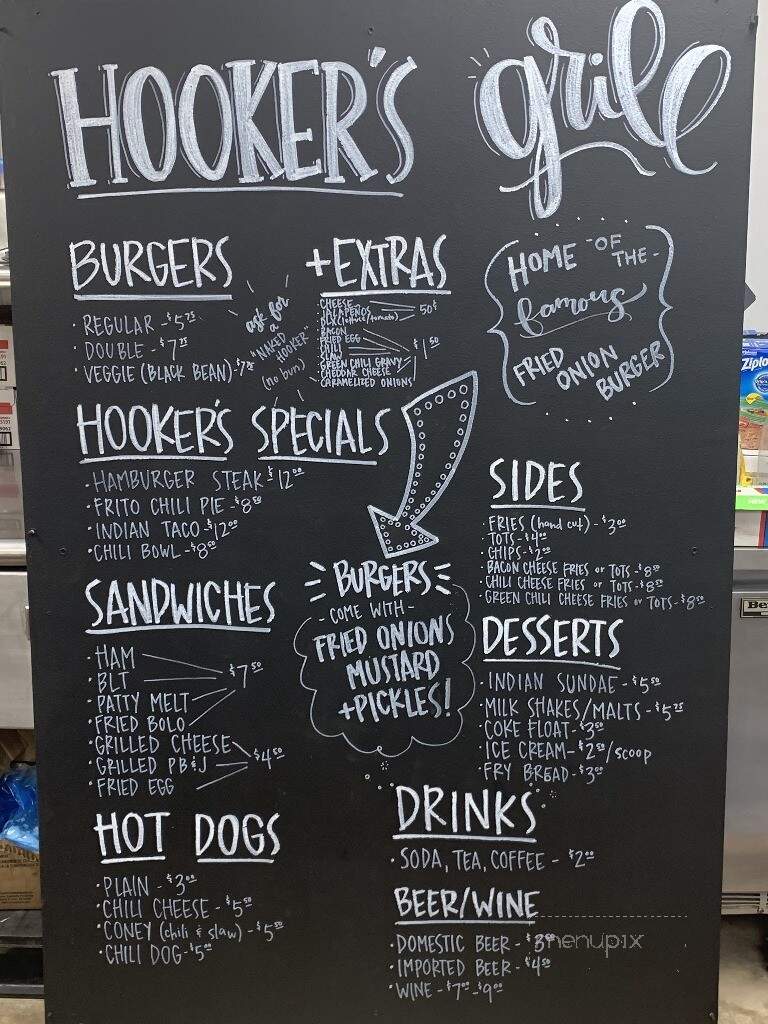 HOOKER'S grill
BURGERS
· REGULAR - $5.75
· DOUBLE - $7.75
· VEGGIE (BLACK BEAN) -
ask for
a
"NAKED HOOKER"
(no bun)
+EXTRAS
CHEESE
JALAPEÑOS
DLX (lettuce/tomato)
50¢
BACON
FRIED EGG
SLAW
GREEN CHILI GRAVY
CHEDDAR CHEESE
CARAMELIZED ONIONS
$1.50
HOME - OF THE -
famous
FRIED ONION BURGER
HOOKER'S SPECIALS
· HAMBURGER STEAK - $12.00
· FRITO CHILI PIE - $8.50
· INDIAN TACO - $12.00
· CHILI BOWL - $8.00
BURGERS
- COME WITH -
FRIED ONIONS
MUSTARD
+PICKLES!
SIDES
· FRIES (hand cut) - $3.00
· TOTS - $4.00
· CHIPS - $2.00
· BACON CHEESE FRIES or TOTS - $8.50
· CHILI CHEESE FRIES or TOTS - $8.50
· GREEN CHILI CHEESE FRIES or TOTS - $8.50
SANDWICHES
· HAM
· BLT
· PATTY MELT
· FRIED BOLO
$7.50
· GRILLED CHEESE
· GRILLED PB&J
· FRIED EGG
$4.50
DESSERTS
· INDIAN SUNDAE - $5.50
· MILK SHAKES/MALTS - $5.75
· COKE FLOAT - $3.50
· ICE CREAM - $2.50/SCOOP
· FRY BREAD - $3.00
HOT DOGS
· PLAIN - $3.00
· CHILI CHEESE - $5.50
· CONEY (chili & slaw) - $5.50
· CHILI DOG - $5.00
DRINKS
· SODA, TEA, COFFEE - $2.00
BEER/WINE
· DOMESTIC BEER - $3.50
· IMPORTED BEER - $4.50
· WINE - $7.00 - $9.00
menupix
Ziplo